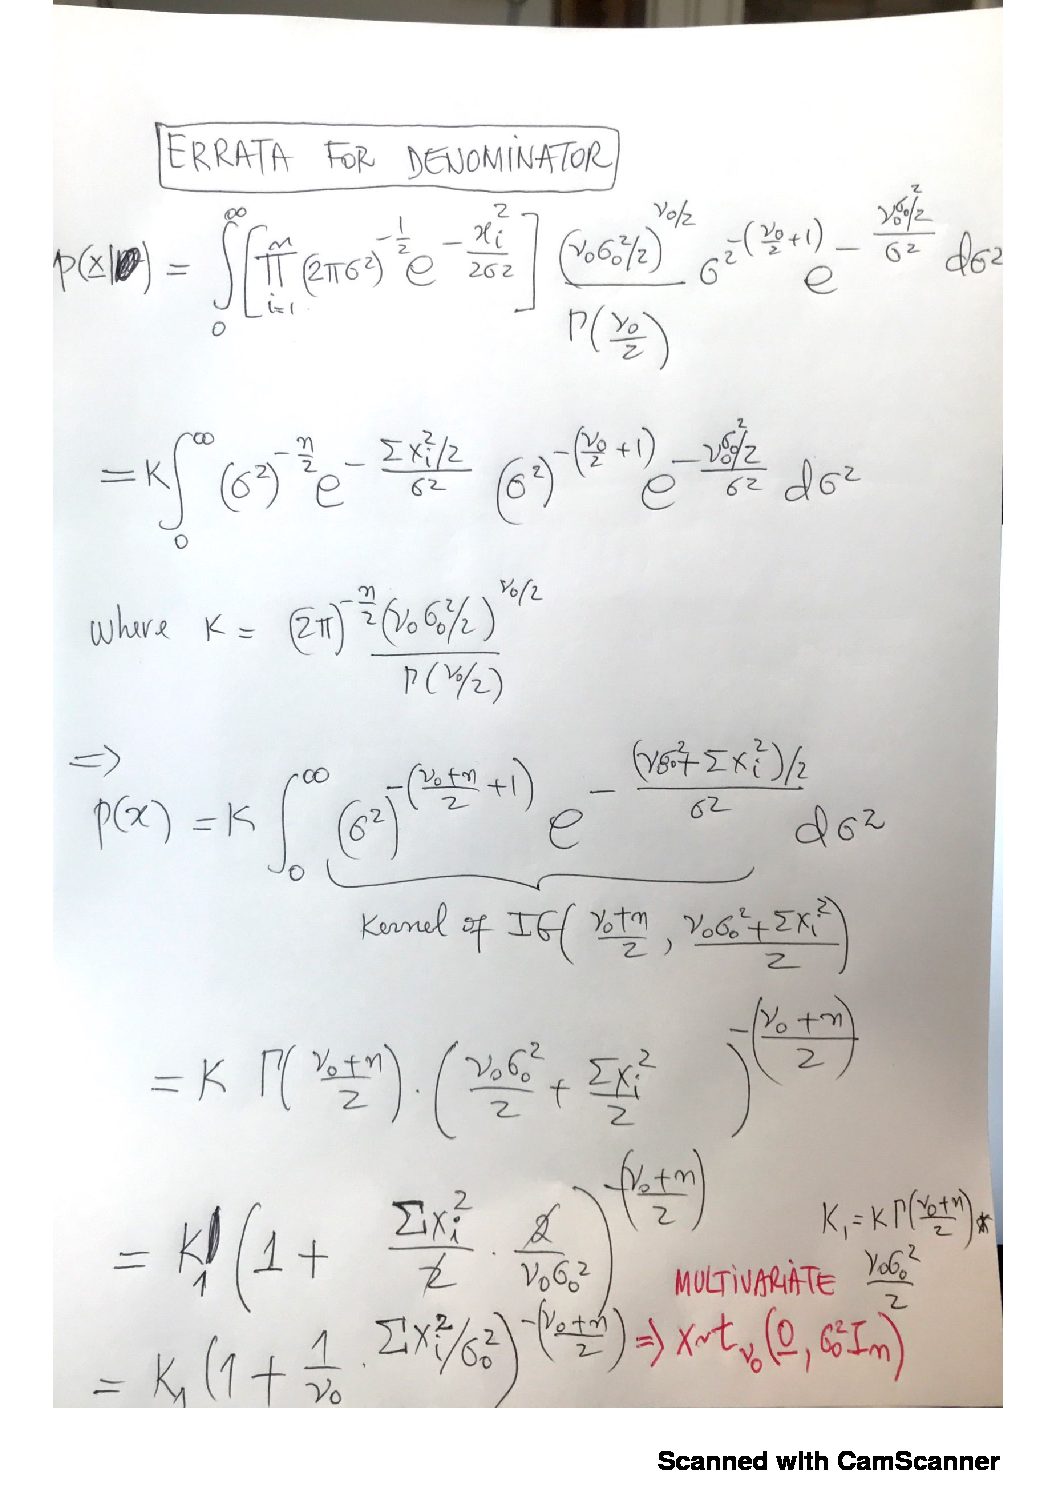 ERRATA FOR DENOMINATOR
p(x|) = ∫₀^∞ [∏_{i=1}^n (2πσ²)^{-1/2} e^{-x_i²/2σ²}] (ν₀σ₀²/2)^{ν₀/2} / Γ(ν₀/2) σ²^{-(ν₀/2+1)} e^{-(ν₀σ₀²/2)/σ²} dσ²
= K ∫₀^∞ (σ²)^{-n/2} e^{-(Σx_i²/2)/σ²} (σ²)^{-(ν₀/2+1)} e^{-(ν₀σ₀²/2)/σ²} dσ²
where K = (2π)^{-n/2} (ν₀σ₀²/2)^{ν₀/2} / Γ(ν₀/2)
⇒
p(x) = K ∫₀^∞ (σ²)^{-((ν₀+n)/2+1)} e^{-((νσ₀²+Σx_i²)/2)/σ²} dσ²
Kernel of IG((ν₀+n)/2, (ν₀σ₀²+Σx_i²)/2)
= K Γ((ν₀+n)/2) · (ν₀σ₀²/2 + Σx_i²/2)^{-((ν₀+n)/2)}
= K₁ (1 + Σx_i²/2 · 2/(ν₀σ₀²))^{-((ν₀+n)/2)}
K₁ = K Γ((ν₀+n)/2) * ν₀σ₀²/2
= K₁ (1 + 1/ν₀ · Σx_i²/σ₀²)^{-((ν₀+n)/2)}
MULTIVARIATE
⇒ X ~ t_{ν₀}(0, σ₀² I_n)
Scanned with CamScanner